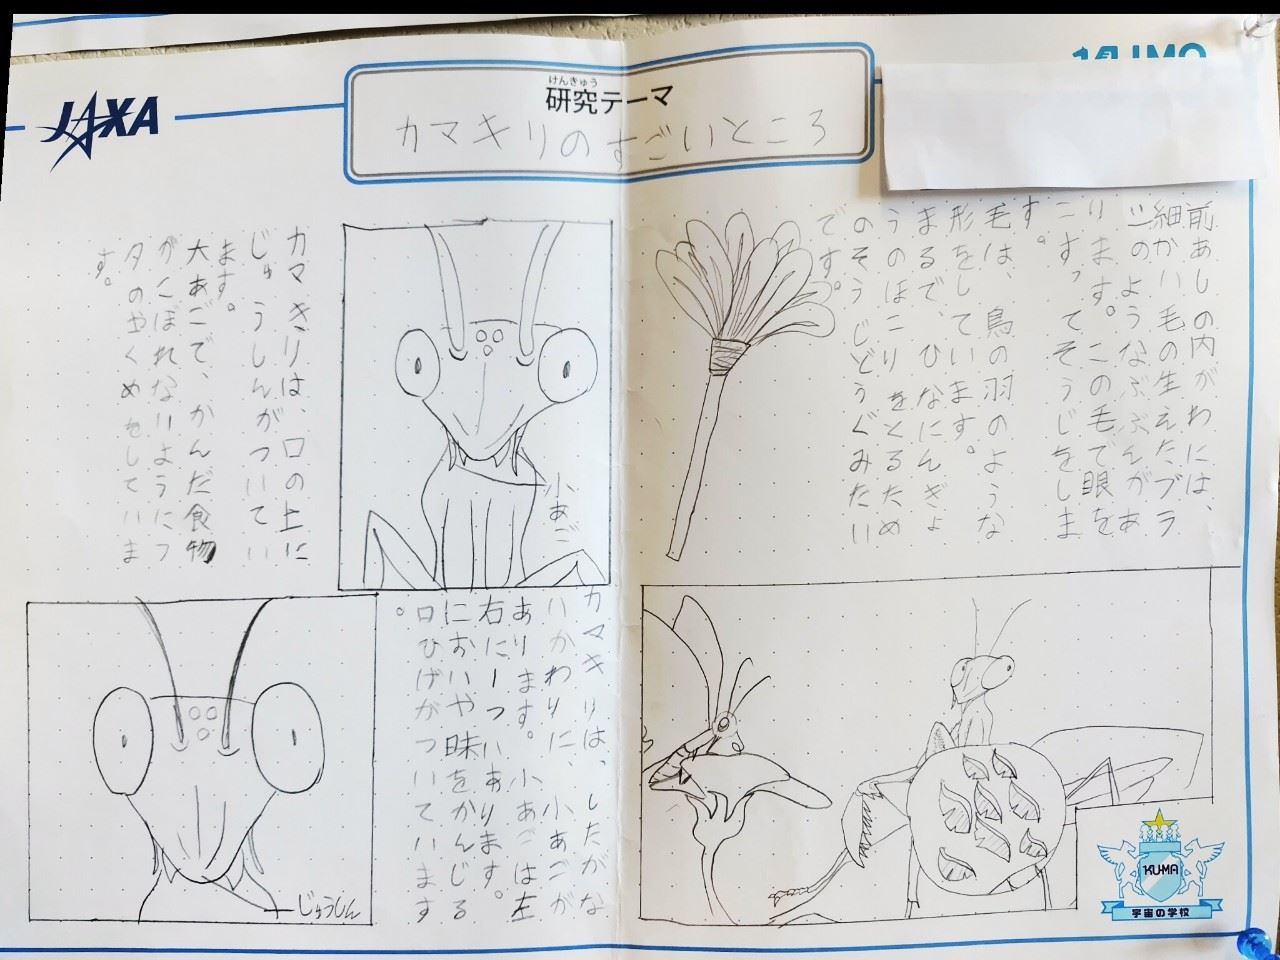 JAXA
けんきゅう
研究テーマ
カマキリのすごいところ
前あしの内がわには、
細かい毛の生えたブラ
シのようなぶぶんがあ
ります。この毛で眼を
こすってそうじをしま
す。
毛は、鳥の羽のような
形をしています。
まるで、ひなにんぎょ
うのほこりをとるため
のそうじどうぐみたい
です。
カマキリは、口の上に
じょうしんがついてい
ます。
大あごで、かんだ食物
がこぼれないようにフ
タのやくめをしていま
す。
小あご
カマキリは、したがな
いかわりに、小あごが
あります。小あごは左
右に一つい あります。
においや味をかんじる
口ひげがついています
。
じょうしん
KU-MA
宇宙の学校